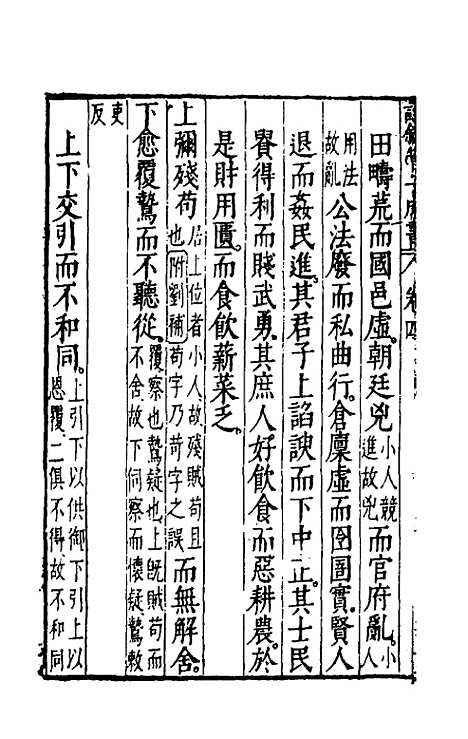 田疇荒而國邑虛。朝廷兇小人競進故兇而官府亂。小人
用法故亂公法廢而私曲行。倉廩虛而囹圄實。賢人
退而姦民進。其君子上諂諛而下中正。其士民
貴得利而賤武勇。其庶人好飲食而惡耕農。於
是財用匱。而食飲薪菜乏。
上彌殘苟居上位者小人故殘賊苟且也附劉補苟字乃苛字之誤而無解舍。
下愈覆鷙而不聽從。覆察也鷙疑也上旣賊苟而不舍故下伺察而懷疑鷙敕
吏反
上下交引而不和同。上引下以供御下引上以恩覆二俱不得故不和同